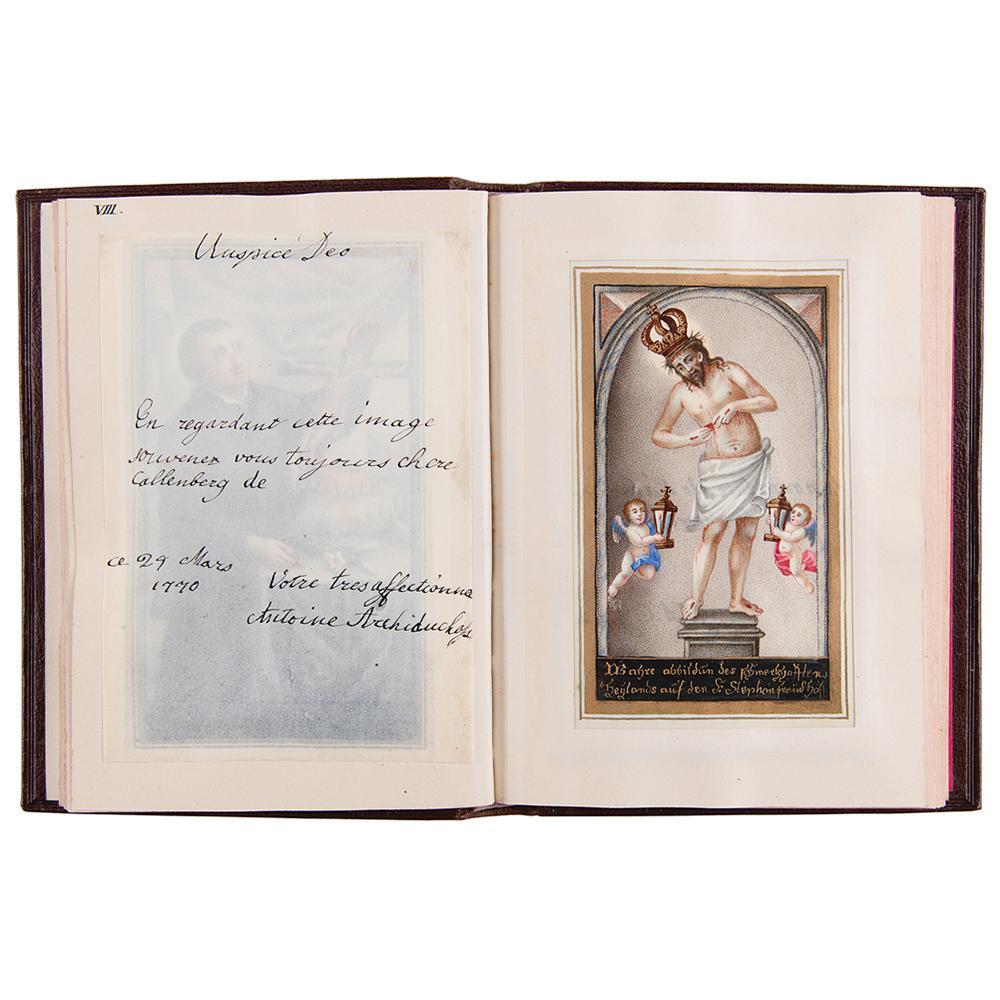 VIII.
Auspice Deo
En regardant cette image
souvenez vous toujours chere
Callenberg de
ce 29 Mars
1770
Votre tres affectionne
Antoine Archiduchesse
Wahre abbildun des schmertzhafften
Heylands auf den St Stephan freudhof